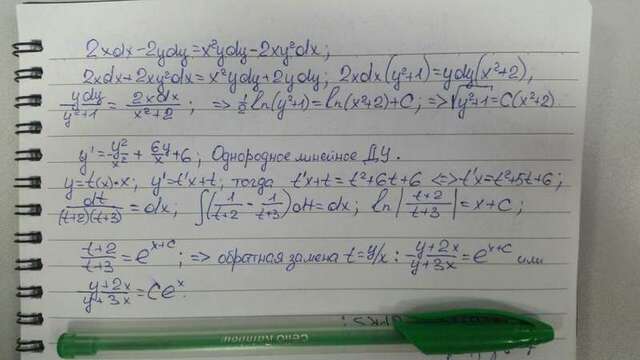 2xdx-2ydy=x²ydy-2xy²dx;
2xdx+2xy²dx=x²ydy+2ydy; 2xdx(y²+1)=ydy(x²+2);
ydy/(y²+1)=2xdx/(x²+2); => 1/2 ln(y²+1)=ln(x²+2)+C; => √(y²+1)=C(x²+2)
y'=y²/x²+6y/x+6; Однородное линейное ДУ.
y=t(x)·x; y'=t'x+t; тогда t'x+t=t²+6t+6 <=> t'x=t²+5t+6;
dt/((t+2)(t+3))=dx; ∫(1/(t+2)-1/(t+3))dt=dx; ln|(t+2)/(t+3)|=x+C;
(t+2)/(t+3)=e^(x+C); => обратная замена t=y/x: (y+2x)/(y+3x)=e^(x+C) или
(y+2x)/(y+3x)=Ce^x.
Cello